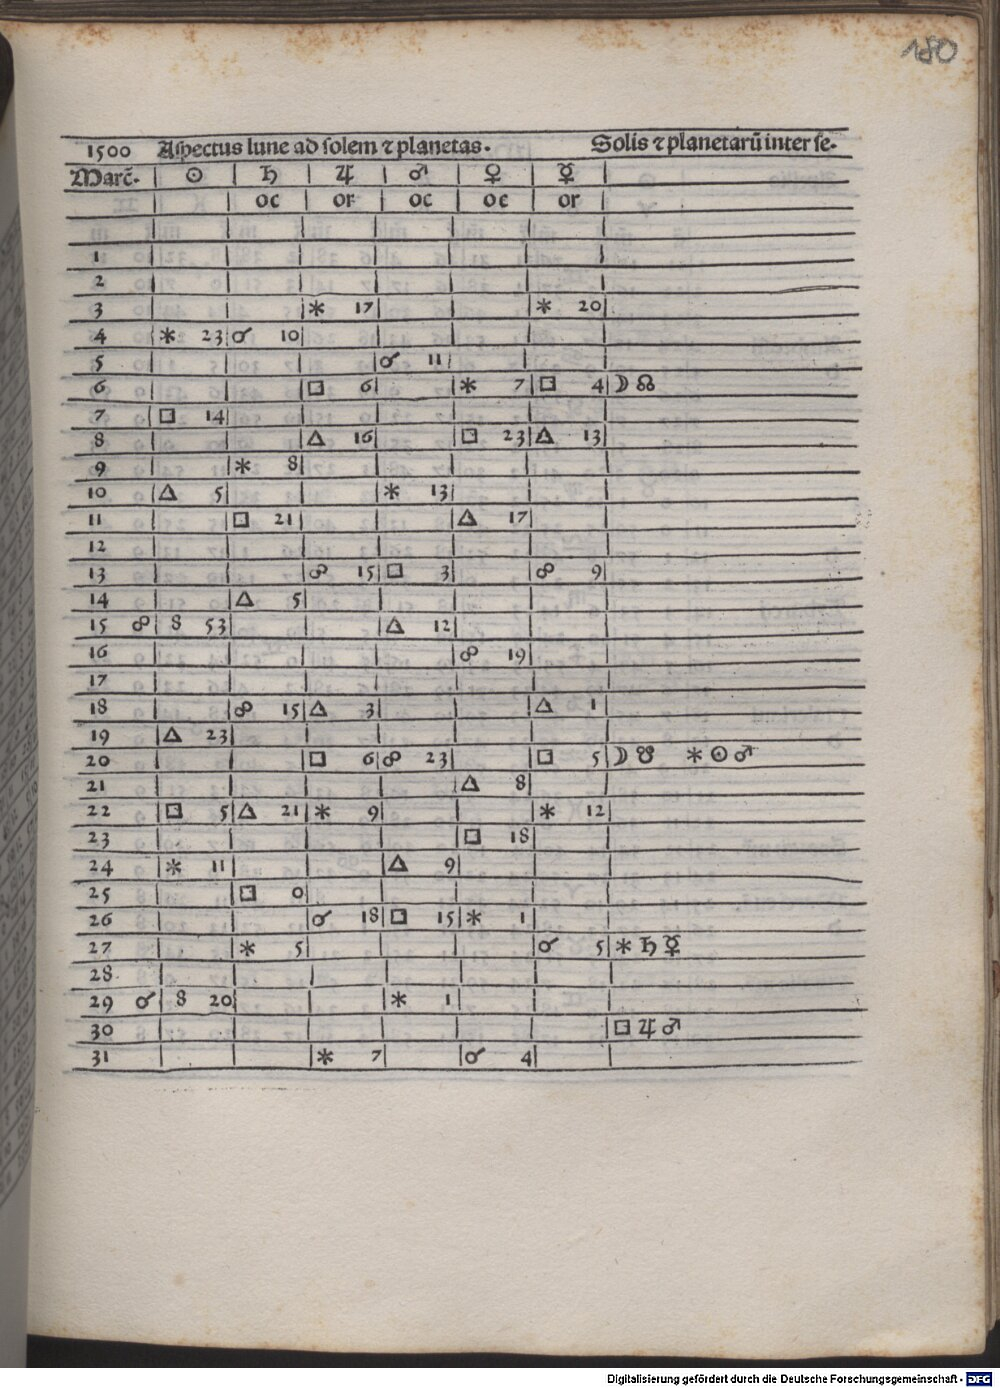 180
1500 Aspectus lune ad solem ⁊ planetas. Solis ⁊ planetarū inter se.
Marc̄. ☉ ♄ ♃ ♂ ♀ ☿
oc or oc oc or
1
2
3 ⚹ 17 ⚹ 20
4 ⚹ 23 ☌ 10
5 ☌ 11
6 □ 6 ⚹ 7 □ 4 ☽ ☊
7 □ 14
8 △ 16 □ 23 △ 13
9 ⚹ 8
10 △ 5 ⚹ 13
11 □ 21 △ 17
12
13 ☍ 15 □ 3 ☍ 9
14 △ 5
15 ☍ 8 53 △ 12
16 ☍ 19
17
18 ☍ 15 △ 3 △ 1
19 △ 23
20 □ 6 ☍ 23 □ 5 ☽ ☋ ⚹ ☉ ♂
21 △ 8
22 □ 5 △ 21 ⚹ 9 ⚹ 12
23 □ 18
24 ⚹ 11 △ 9
25 □ 0
26 ☌ 18 □ 15 ⚹ 1
27 ⚹ 5 ☌ 5 ⚹ ♄ ☿
28
29 ☌ 8 20 ⚹ 1
30 □ ♃ ♂
31 ⚹ 7 ☌ 4
Digitalisierung gefördert durch die Deutsche Forschungsgemeinschaft - DFG